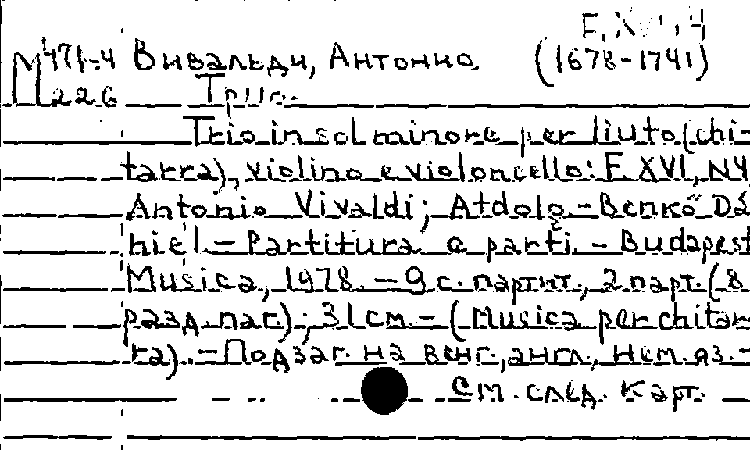 F. XVI, 4
М 471-4 Вивальди, Антонио (1678-1741)
226 Трио.
Trio in sol minore per liuto (chi-
tarra), violino e violoncello: F. XVI, N4
Antonio Vivaldi; Átdolg.-Benkő Dá-
niel.-Partitura e parti.-Budapest
Musica, 1978.-9 с. партит., 2 парт. (8
разд. паг.); 31 см.-(Musica per chitar-
ra).-Подзаг. на венг., англ., нем. яз.-
См. след. карт.